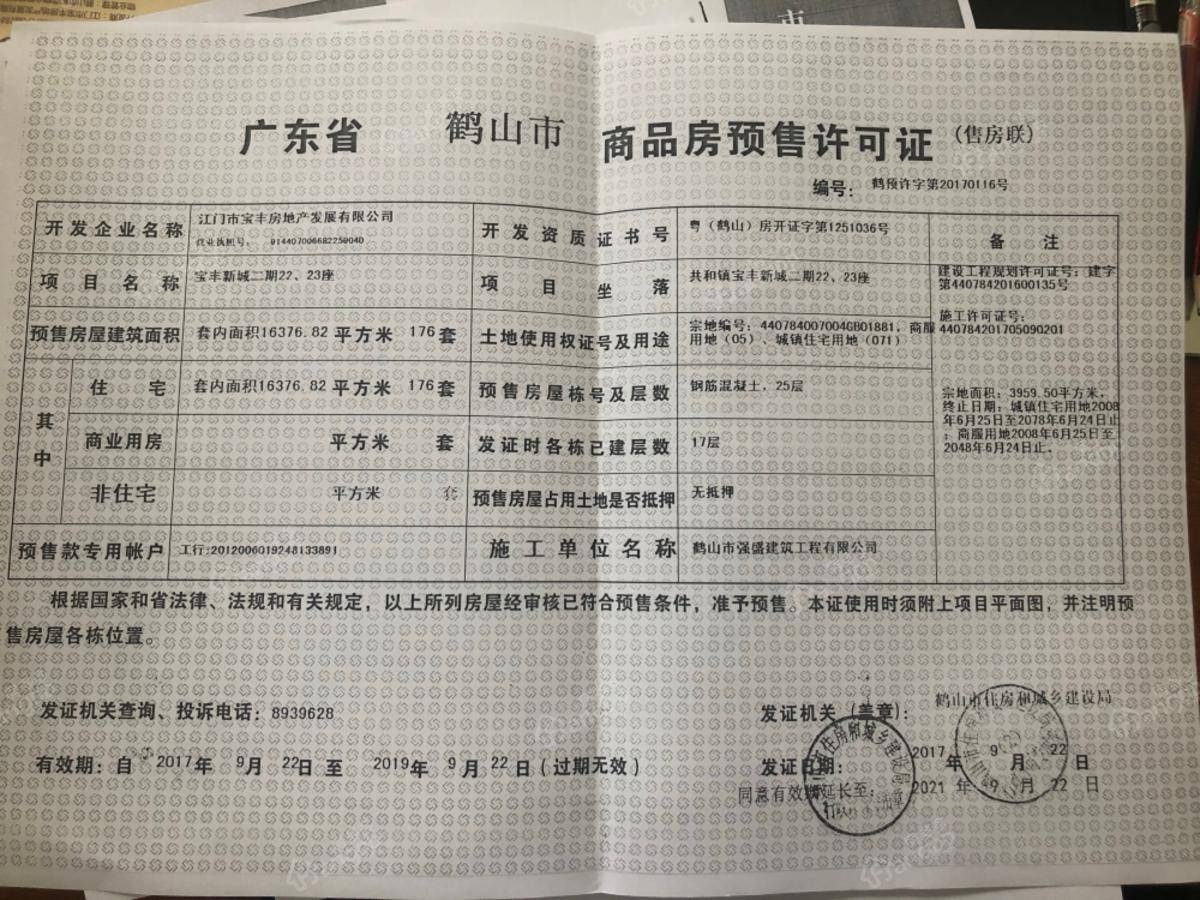 广东省 鹤山市 商品房预售许可证 (售房联)
编号: 鹤预许字第20170116号
开发企业名称 江门市宝丰房地产发展有限公司
营业执照号: 914407006682259040
开发资质证书号 粤（鹤山）房开证字第1251036号
备 注
项目名称 宝丰新城二期22、23座
项目坐落 共和镇宝丰新城二期22、23座
建设工程规划许可证号: 建字
第440784201600135号
预售房屋建筑面积 套内面积16376.82 平方米 176 套
土地使用权证号及用途 宗地编号: 440784007004GB01881, 商服
用地（05）、城镇住宅用地（071）
施工许可证号:
440784201705090201
其中
住宅 套内面积16376.82 平方米 176 套
预售房屋栋号及层数 钢筋混凝土, 25层
宗地面积: 3959.50平方米,
终止日期: 城镇住宅用地2008
年6月25日至2078年6月24日止
; 商服用地2008年6月25日至
2048年6月24日止.
商业用房 平方米 套
发证时各栋已建层数 17层
非住宅 平方米 套
预售房屋占用土地是否抵押 无抵押
预售款专用帐户 工行:2012006019248133891
施工单位名称 鹤山市强盛建筑工程有限公司
根据国家和省法律、法规和有关规定，以上所列房屋经审核已符合预售条件，准予预售。本证使用时须附上项目平面图，并注明预
售房屋各栋位置。
发证机关查询、投诉电话: 8939628
发证机关（盖章）: 鹤山市住房和城乡建设局
有效期: 自 2017年 9月 22日 至 2019年 9月 22日 (过期无效)
发证日期: 2017年 9月 22日
同意有效期延长至: 2021年 9月 22日